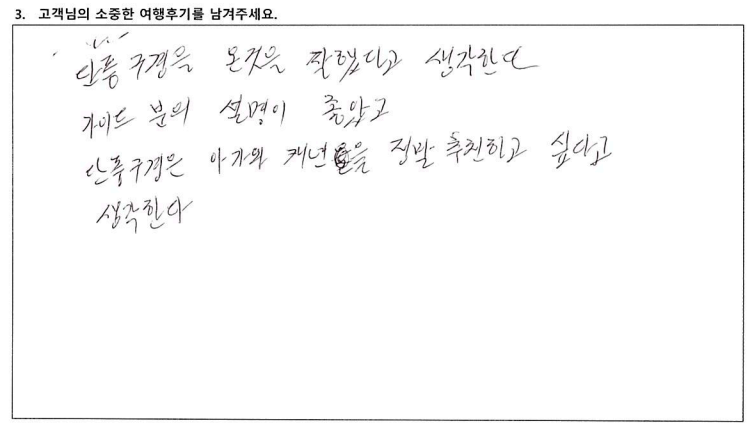 3. 고객님의 소중한 여행후기를 남겨주세요.
단풍구경을 온것을 잘했다고 생각한다
가이드 분의 설명이 좋았고
단풍구경은 아가와 캐년을 정말 추천하고 싶다고
생각한다